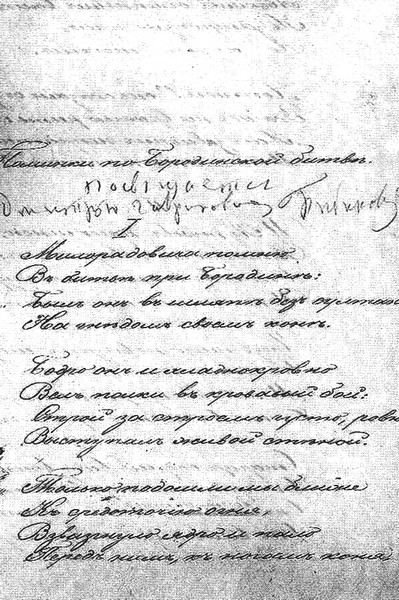 Поминки по Бородинской битвѣ.
Посвящается
Дмитрію Гавриловичу Бибикову
I
Милорадовича помню
Въ битвѣ при Бородинѣ:
Былъ онъ въ шляпѣ безъ султан
На гнѣдомъ своемъ конѣ.
Бодро онъ и хладнокровно
Велъ полки въ кровавый бой:
Строй за строемъ густо, ровн
Выступалъ живой стѣной.
Только подошли мы ближе
Къ средоточію огня,
Взвизгнуло ядро и пало
Передъ нимъ, къ ногамъ коня,